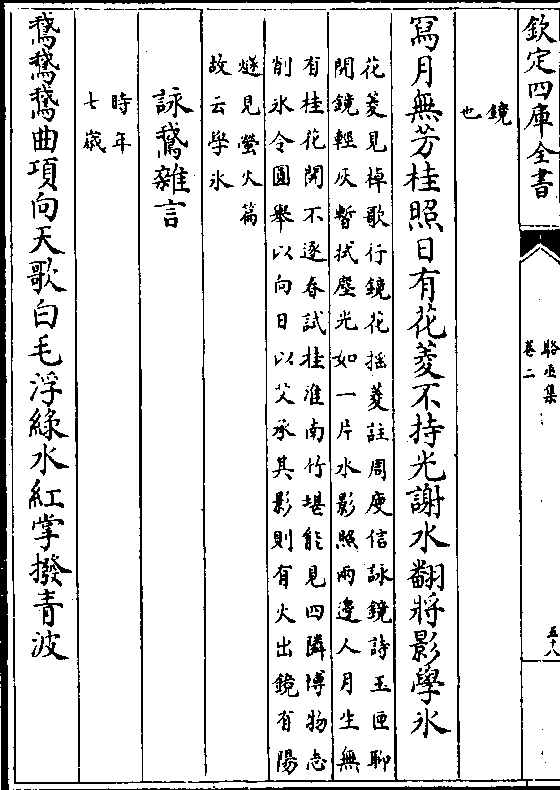 欽定四庫全書
駱丞集
卷二
五十八
鏡
也
寫月無芳桂照日有花菱不持光謝水翻將影學氷
花菱見棹歌行鏡花揺菱註周庾信詠鏡詩玉匣聊
開鏡輕灰暫拭塵光如一片水影照兩邊人月生無
有桂花開不逐春試挂淮南竹堪能見四隣博物志
削氷令圓舉以向日以艾承其影則有火出鏡有陽
燧見螢火篇
故云學氷
詠鵝雜言
時年
七歳
鵞鵞鵞曲項向天歌白毛浮緑水紅掌撥青波